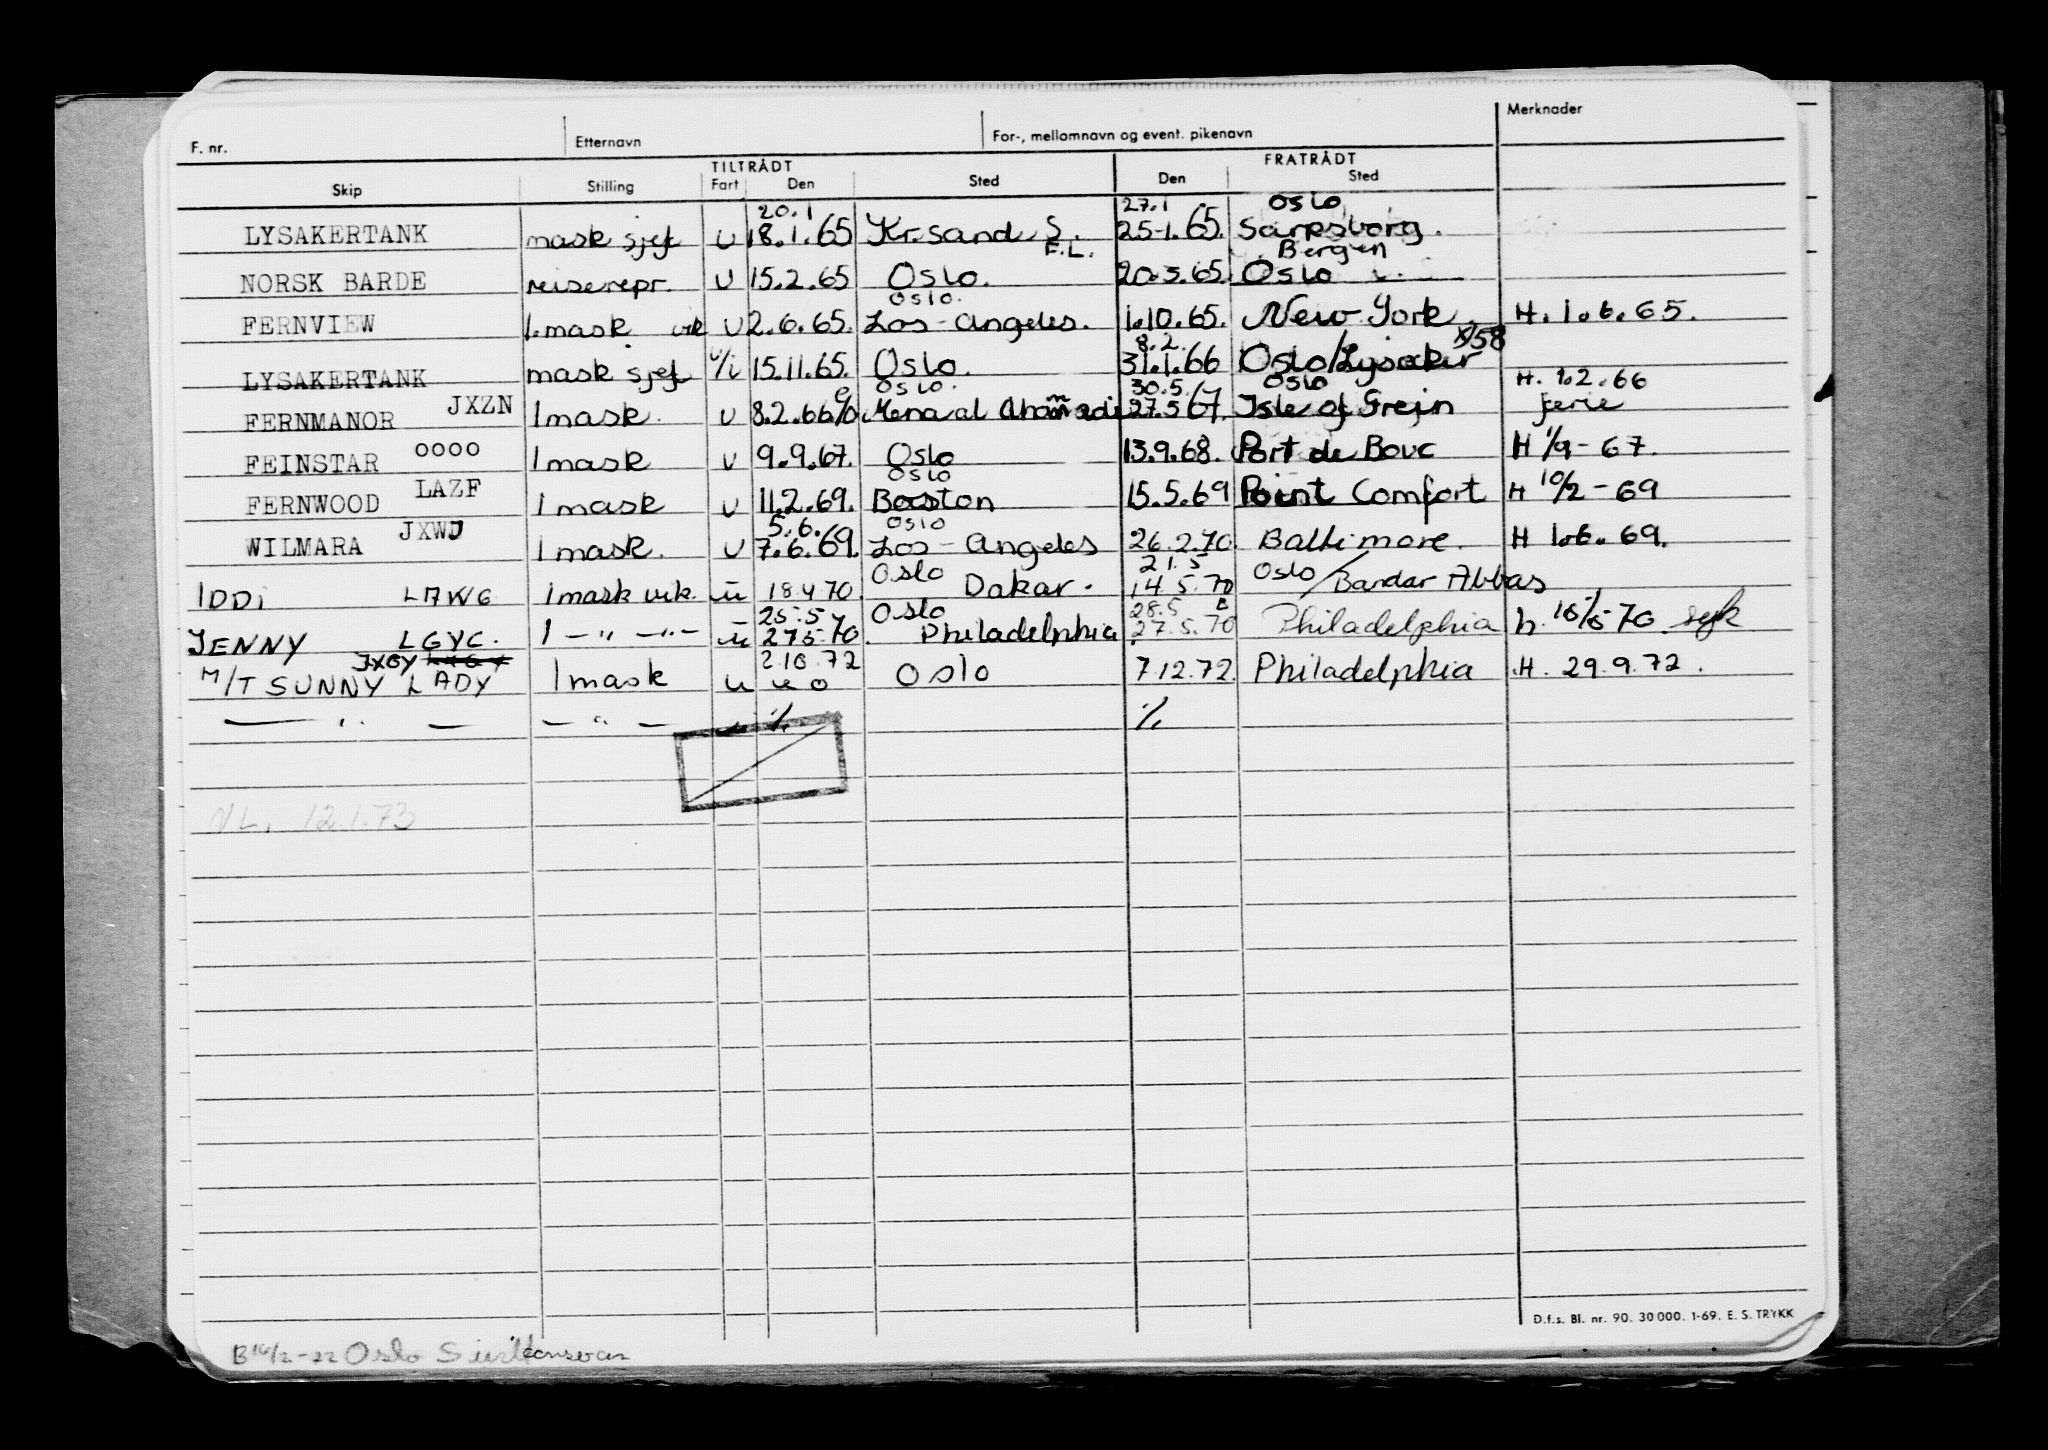 F. nr. Etternavn For-, mellomnavn og event. pikenavn Merknader
TILTRÅDT FRATRÅDT
Skip Stilling Fart Den Sted Den Sted
20.1 27.1 Oslo
LYSAKERTANK mask sjef u 18.1.65 Kr.sand S. 25-1.65. Sarpsborg.
F.L. Bergen
NORSK BARDE reiserepr. u 15.2.65 Oslo. 20.3.65. Oslo
Oslo.
FERNVIEW 1.mask vik u 2.6.65. Los-Angeles. 1.10.65. New York. H. 1.6.65.
8.2. x/58
LYSAKERTANK mask sjef u/i 15.11.65. Oslo. 31.1.66 Oslo/Lysaker
Oslo. 30.5 Oslo H. 1.2.66
FERNMANOR JXZN 1 mask. u 8.2.66 % Mena al Ahmadi 27.5 67. Isle of Grein ferie
FEINSTAR OOOO 1 mask u 9.9.67. Oslo 13.9.68. Port de Bouc H 1/9-67.
Oslo
FERNWOOD LAZF 1 mask u 11.2.69. Boston 15.5.69 Point Comfort H 10/2-69
5.6. Oslo
WILMARA JXWJ 1 mask. u 7.6.69. Los-Angeles 26.2.70. Baltimore. H 1.6.69.
Oslo 21.5
IDDi LAWG 1 mask vik. u 18 4 70 Dakar. 14.5.70 Oslo/Bandar Abbas
25.5 Oslo 28.5
JENNY LGYC. 1 -"- -"- u 27 5 70. Philadelphia 27.5.70 Philadelphia h. 16/5 70 syk
JXGY 2.10.72
M/T SUNNY LADY 1 mask u u o Oslo 7.12.72. Philadelphia H. 29.9.72.
— " — — " — u % %
NL. 12.1.73
D.f.s. Bl. nr. 90. 30 000. 1-69. E. S. TRYKK
B 16/2-22 Oslo